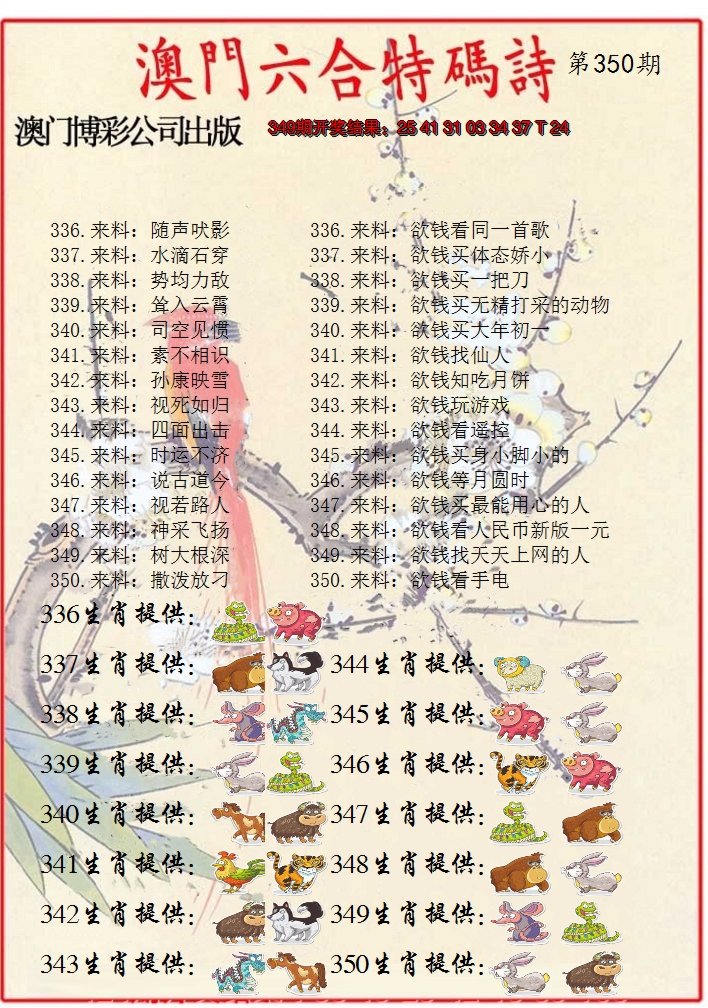 澳門六合特碼詩 第350期
澳门博彩公司出版 349期开奖结果：25 41 31 03 34 37 T 24
336.来料：随声吠影 336.来料：欲钱看同一首歌
337.来料：水滴石穿 337.来料：欲钱买体态娇小
338.来料：势均力敌 338.来料：欲钱买一把刀
339.来料：耸入云霄 339.来料：欲钱买无精打采的动物
340.来料：司空见惯 340.来料：欲钱买大年初一
341.来料：素不相识 341.来料：欲钱找仙人
342.来料：孙康映雪 342.来料：欲钱知吃月饼
343.来料：视死如归 343.来料：欲钱玩游戏
344.来料：四面出击 344.来料：欲钱看遥控
345.来料：时运不济 345.来料：欲钱买身小脚小的
346.来料：说古道今 346.来料：欲钱等月圆时
347.来料：视若路人 347.来料：欲钱买最能用心的人
348.来料：神采飞扬 348.来料：欲钱看人民币新版一元
349.来料：树大根深 349.来料：欲钱找天天上网的人
350.来料：撒泼放刁 350.来料：欲钱看手电
336生肖提供：
337生肖提供： 344生肖提供：
338生肖提供： 345生肖提供：
339生肖提供： 346生肖提供：
340生肖提供： 347生肖提供：
341生肖提供： 348生肖提供：
342生肖提供： 349生肖提供：
343生肖提供： 350生肖提供：